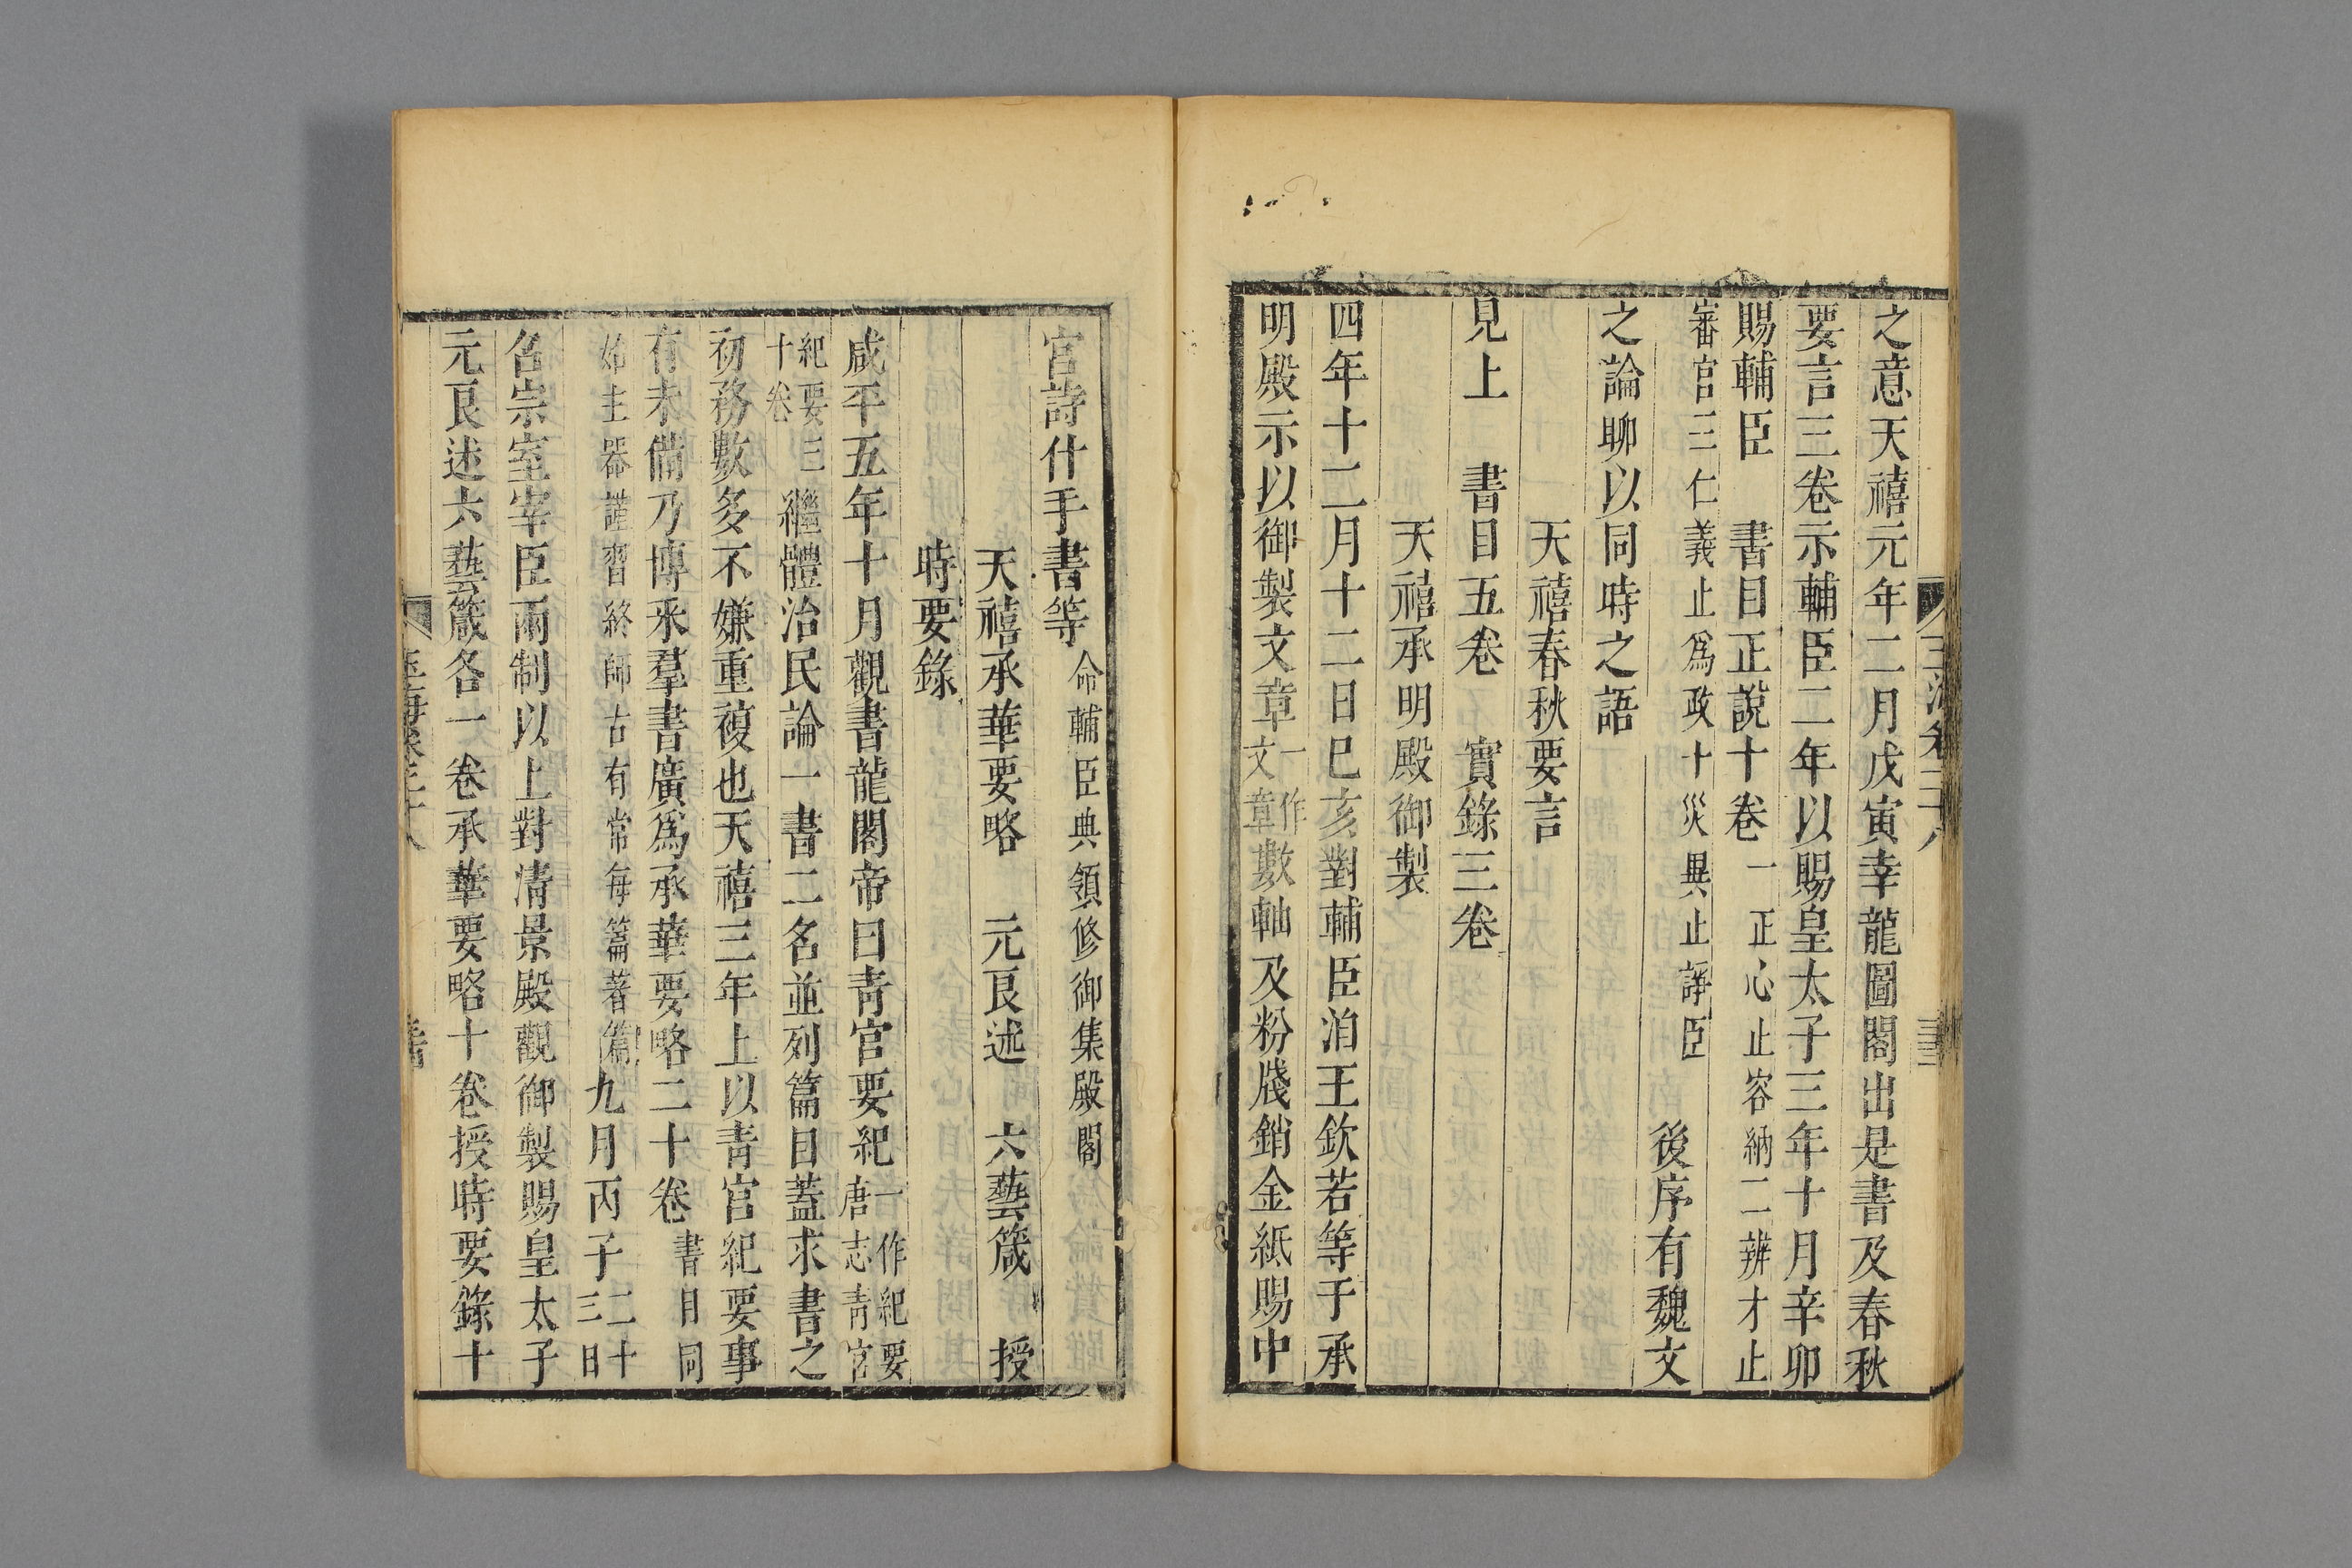 之意天禧元年二月戊寅幸龍圖閣出是書及春秋
要言三卷示輔臣二年以賜皇太子三年十月辛卯
賜輔臣 書目正說十卷一正心止容納二辨才止
審官三仁義止為政十災異止諍臣 後序有魏文
之論聊以同時之語
天禧春秋要言
見上 書目五卷 實錄三卷
天禧承明殿御製
四年十二月十二日巳亥對輔臣洎王欽若等于承
明殿示以御製文章一作文章數軸及粉牋銷金紙賜中
宮詩什手書等命輔臣典領修御集殿閣
天禧承華要略 元良述 六藝箴 授
時要錄
咸平五年十月觀書龍閣帝曰青宮要紀一作紀要唐志青宮
紀要三十卷繼體治民論一書二名並列篇目蓋求書之
初務數多不嫌重複也天禧三年上以青宮紀要事
有未備乃博采羣書廣為承華要略二十卷書目同
始主器謹習終師古有常每篇著篇九月丙子二十三日
召宗室宰臣兩制以上對清景殿觀御製賜皇太子
元良述六藝箴各一卷承華要略十卷授時要錄十